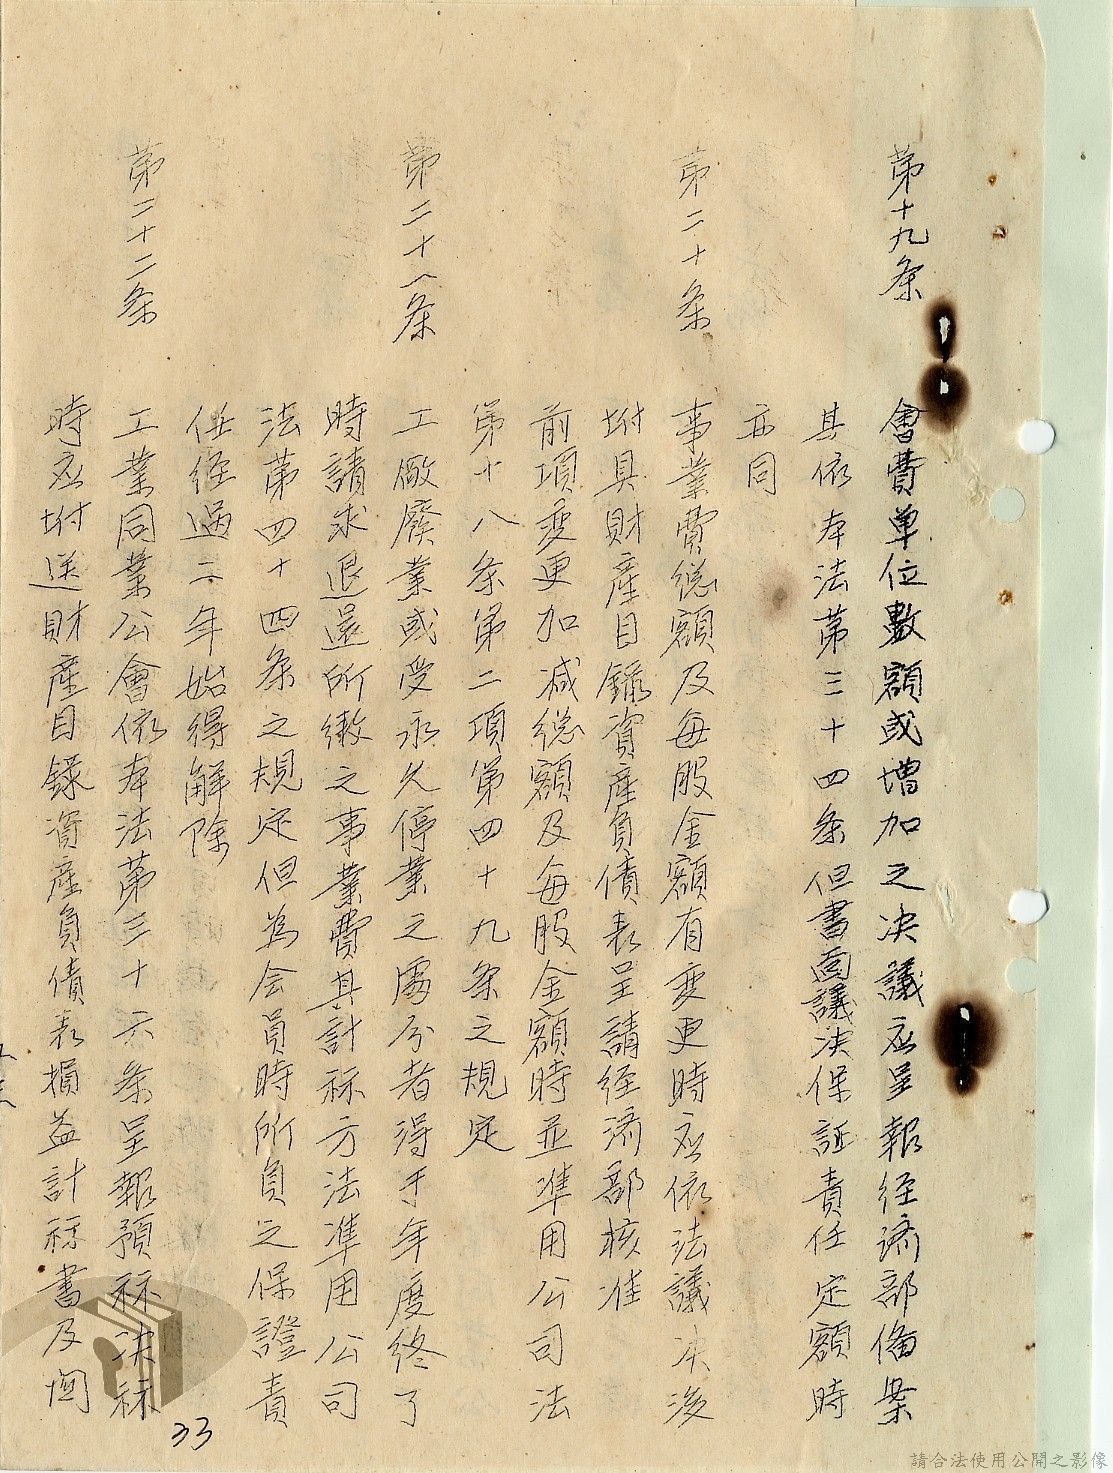 第十九条 會費单位數額或增加之决議应呈報经済部俻案
其依本法第三十四条但書面議决保証責任定額時
亦同
第二十条 事業費総額及每股金額有变更時应依法議决後
坿具財產目錄資產負債表呈請经済部核准
前項变更加减総額及每股金額時並準用公司法
第十八条第二項第四十九条之規定
第二十一条 工廠廢業或受永久停業之處分者得于年度终了
時請求退還所繳之事業費其計祘方法準用公司
法第四十四条之規定但為会員時所負之保證責
任经過二年始得解除
第二十二条 工業同業公會依本法第三十六条呈報預祘决祘
時应坿送財產目錄資產負債表損益計祘書及
33
請合法使用公開之影像